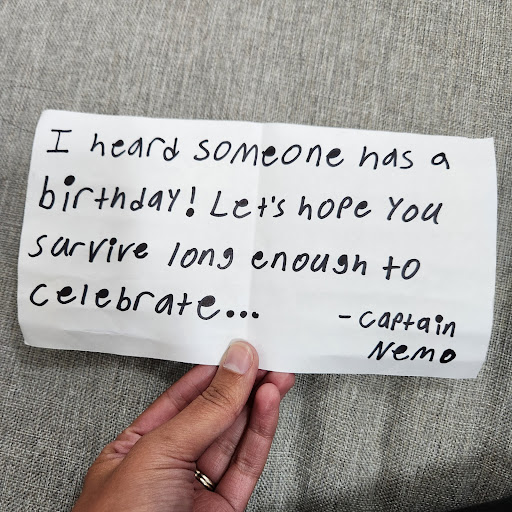 I heard someone has a
birthday! Let's hope you
survive long enough to
celebrate...
- Captain
Nemo